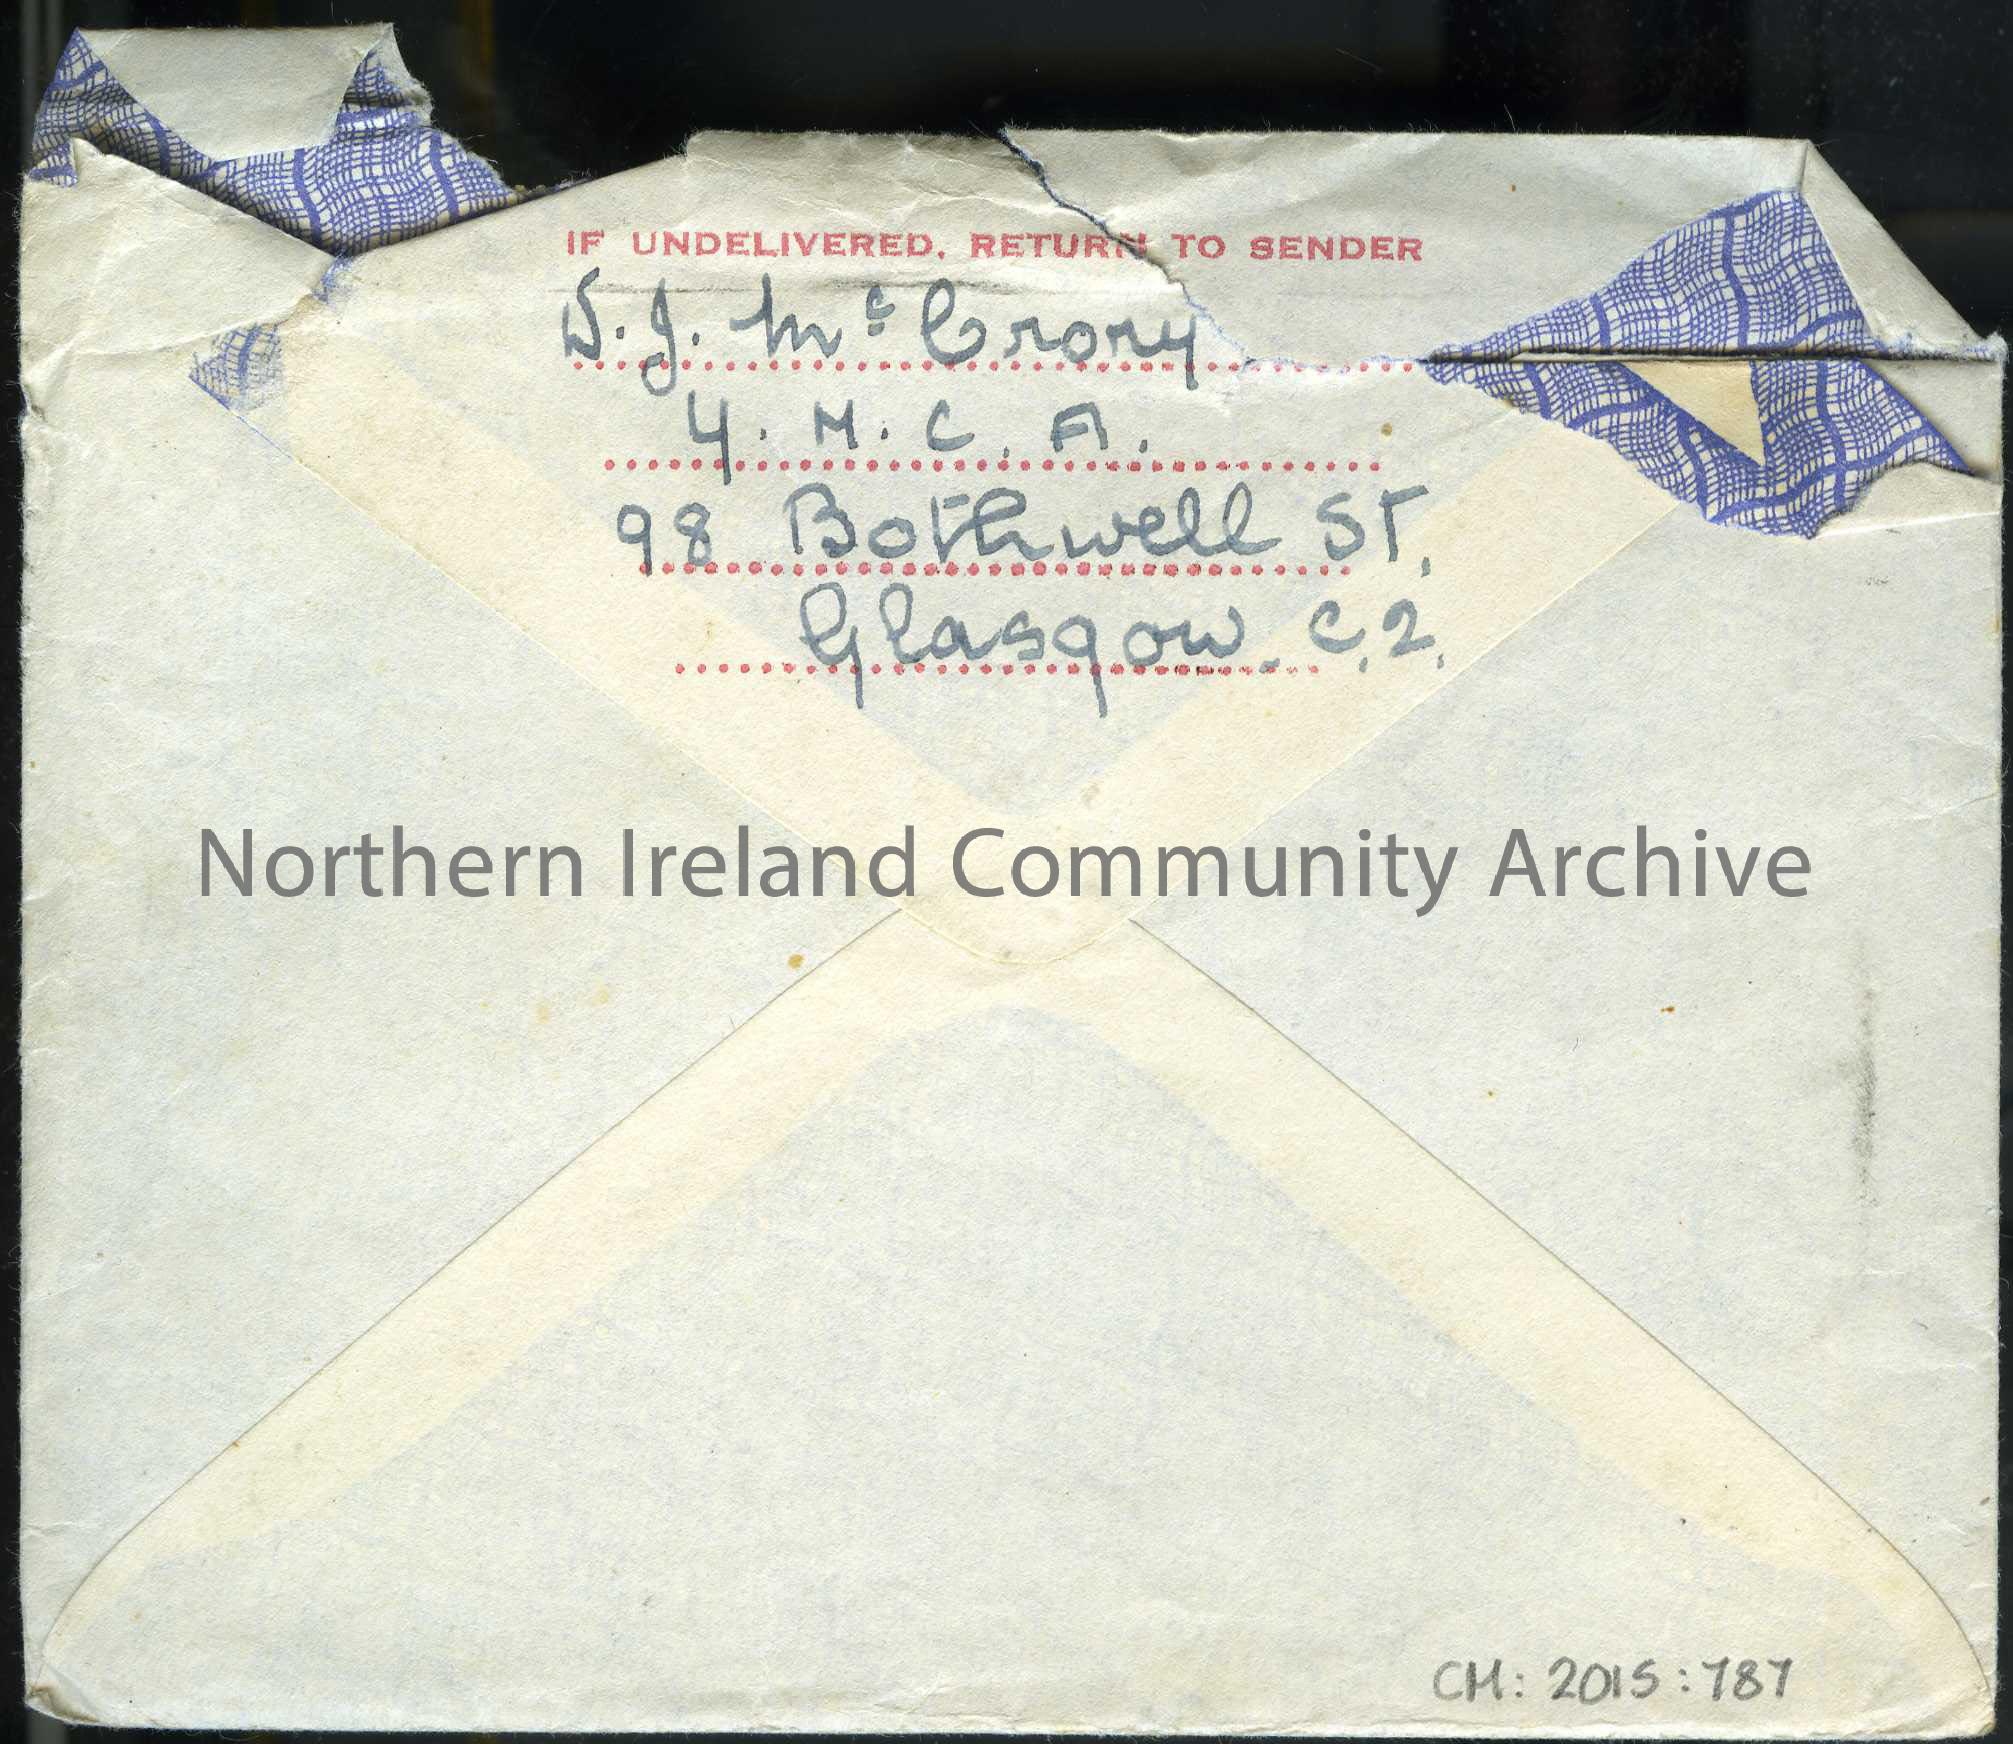 IF UNDELIVERED, RETURN TO SENDER
D. J. Mc Crory
Y. M. C. A.
98 Bothwell St.
Glasgow. C.2.
Northern Ireland Community Archive
CM: 2015:787